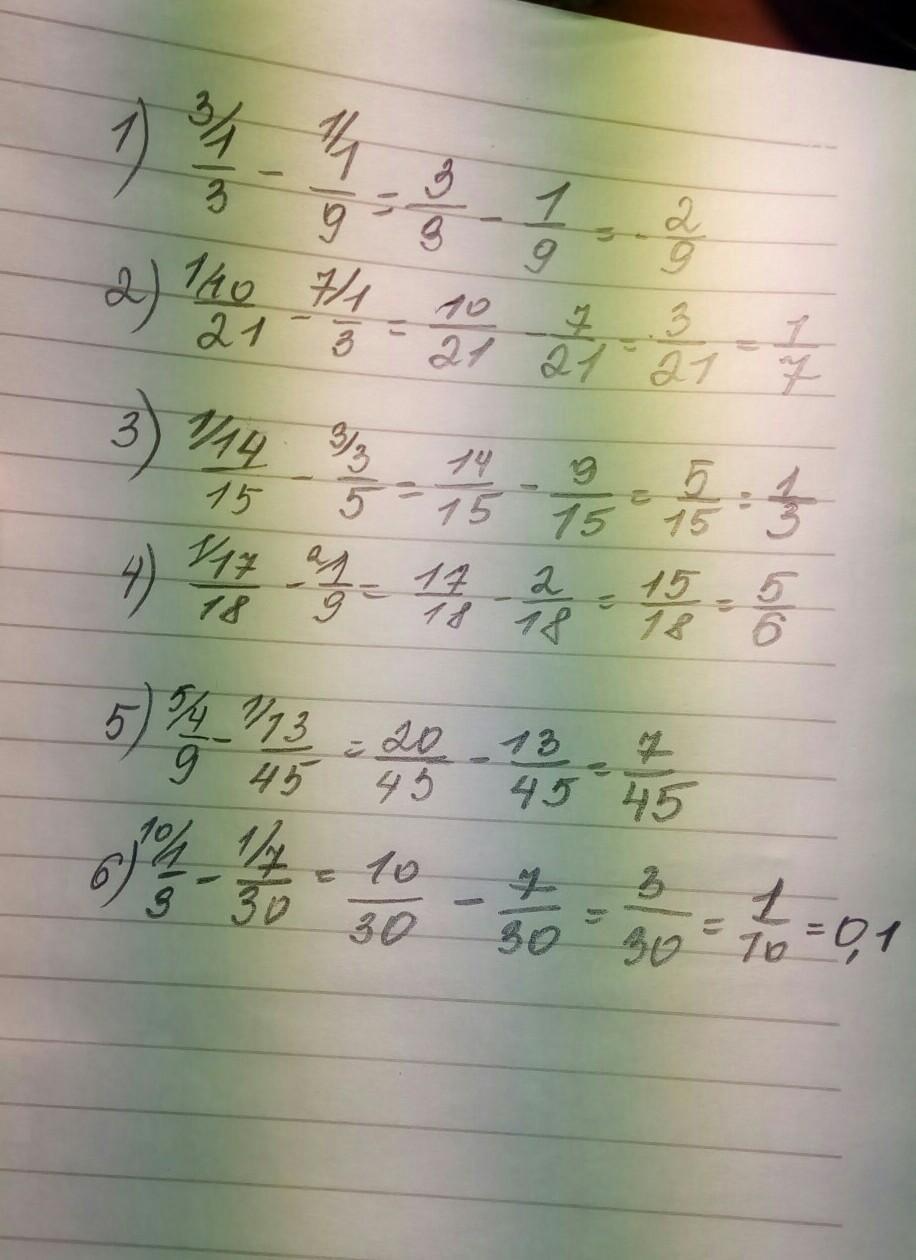 1) 3/ 1/3 - 1/ 1/9 = 3/9 - 1/9 = - 2/9
2) 1/ 10/21 - 7/ 1/3 = 10/21 - 7/21 = 3/21 = 1/7
3) 1/ 14/15 - 3/ 3/5 = 14/15 - 9/15 = 5/15 = 1/3
4) 1/ 17/18 - 2/ 1/9 = 17/18 - 2/18 = 15/18 = 5/6
5) 5/ 4/9 - 1/ 13/45 = 20/45 - 13/45 = 7/45
6) 10/ 1/3 - 1/ 7/30 = 10/30 - 7/30 = 3/30 = 1/10 = 0,1